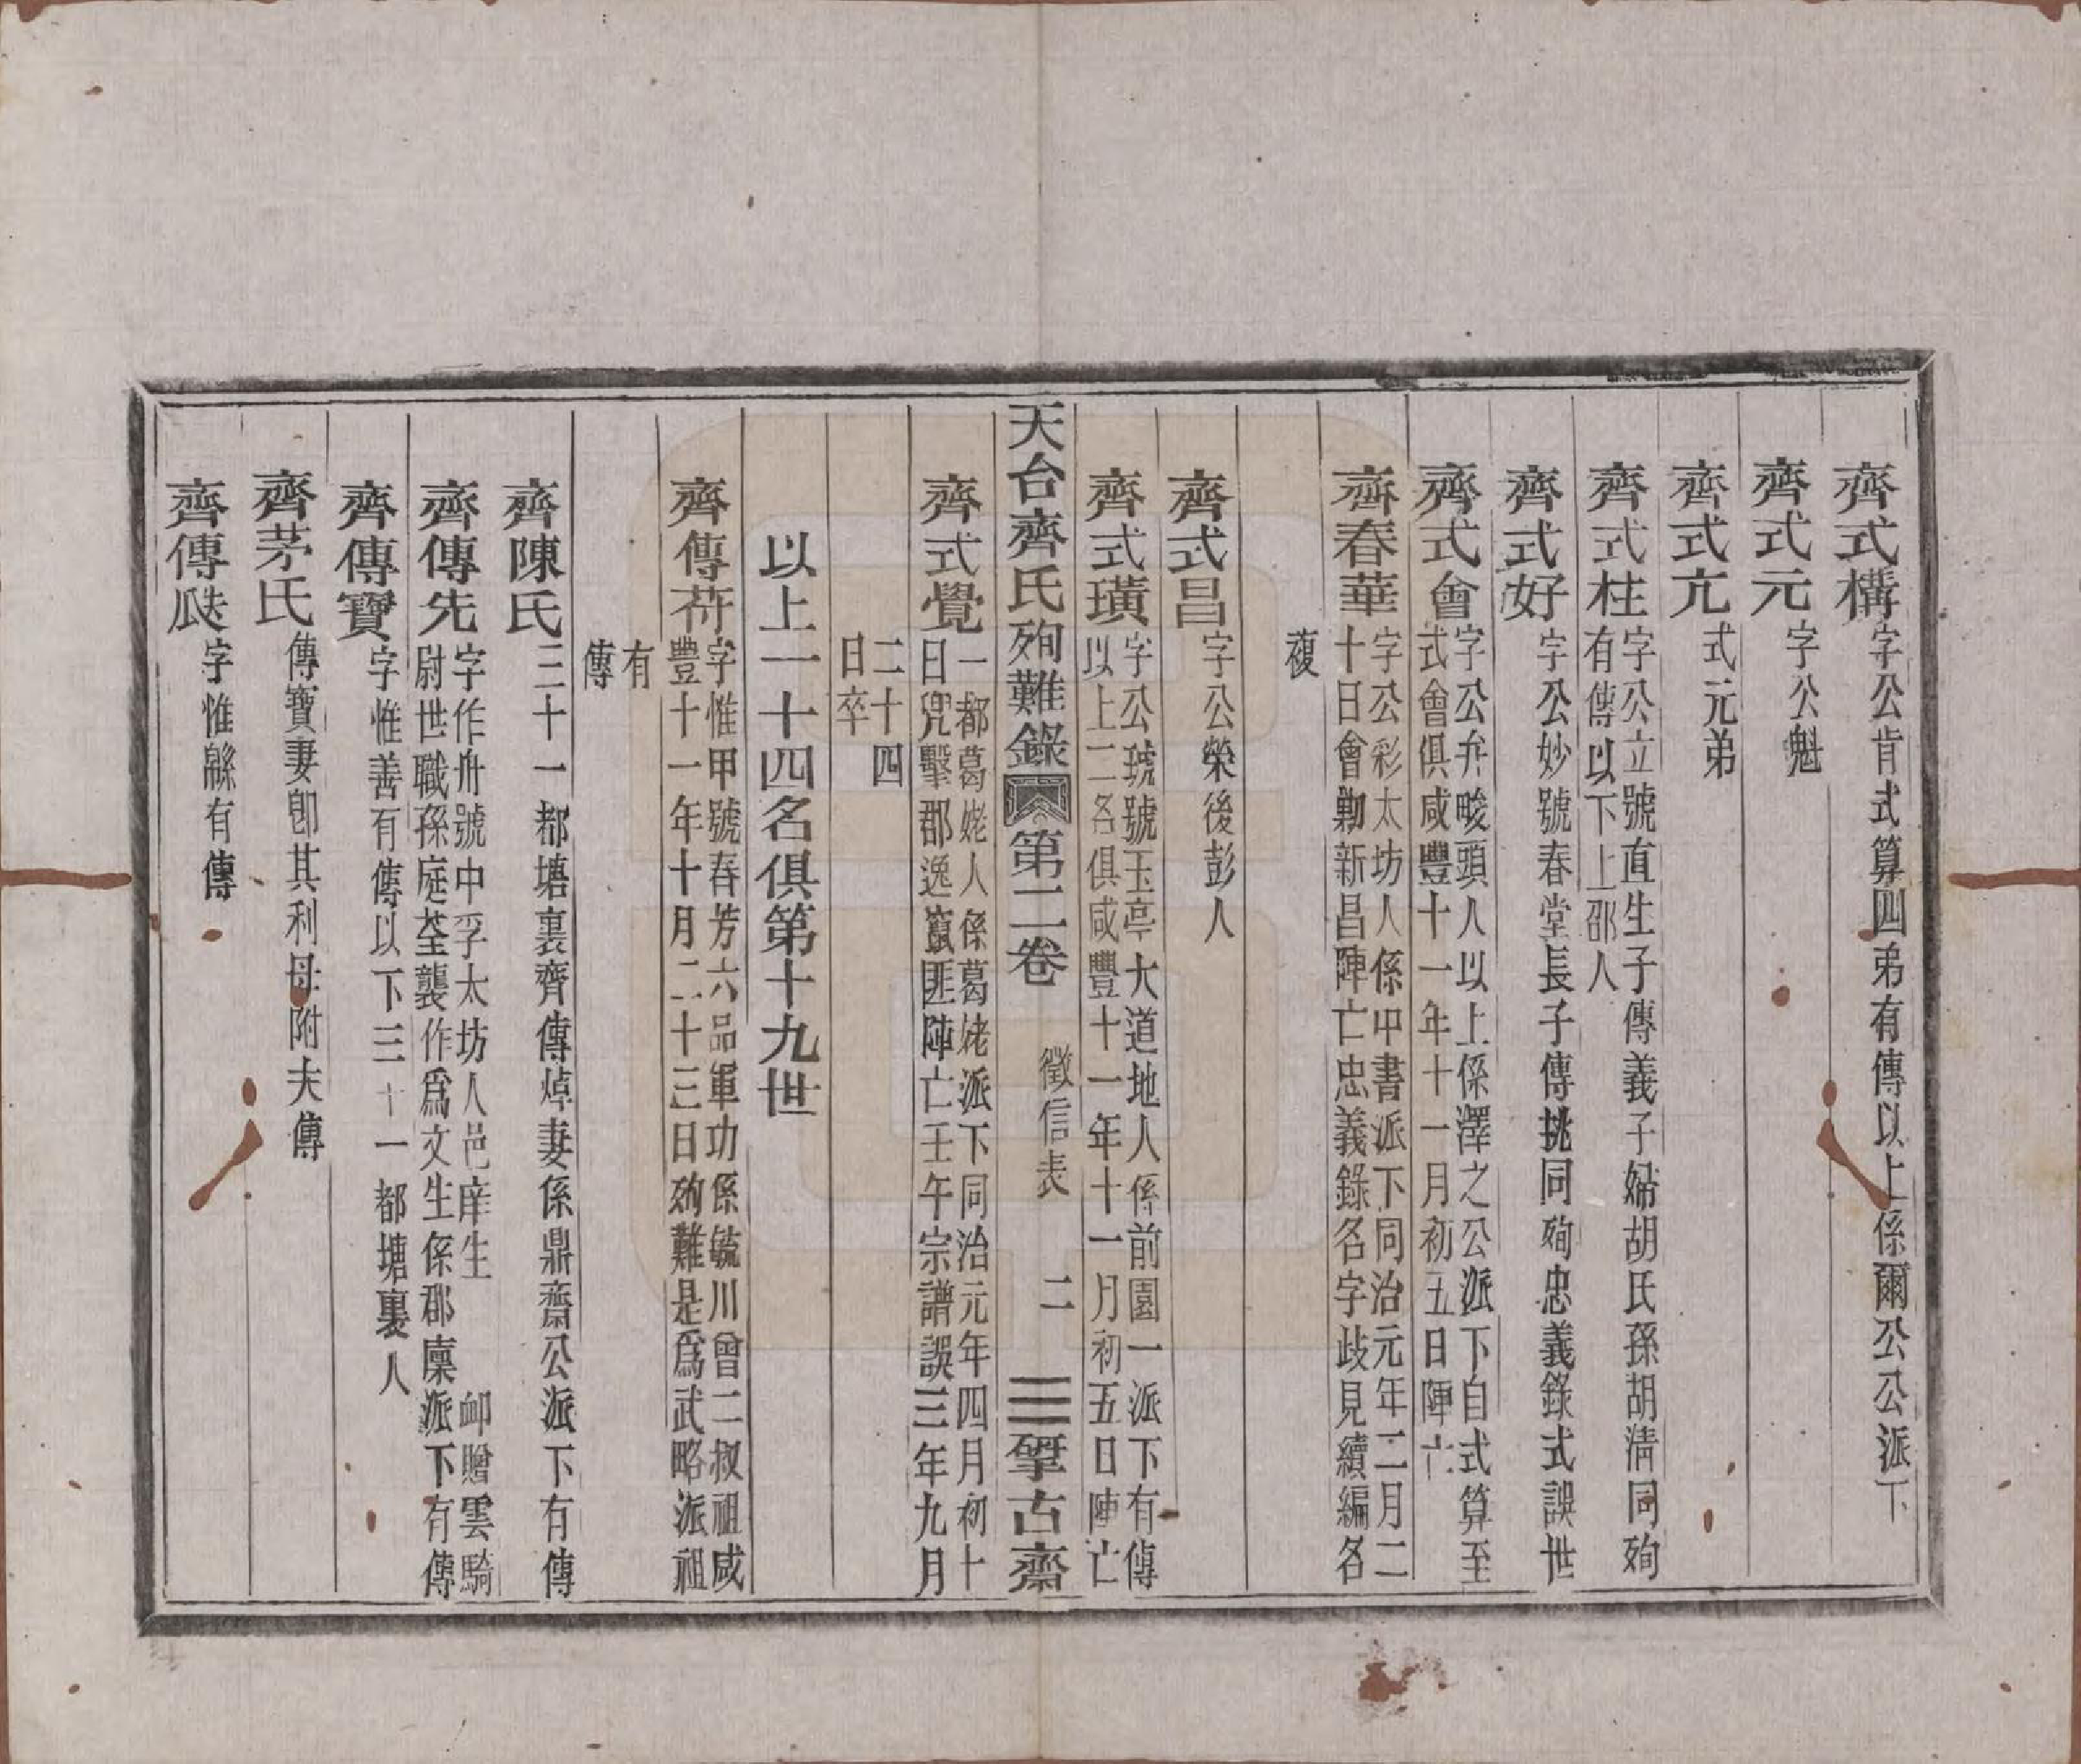 齊式構字公肯式算四弟有傳以上係爾公公派下
齊式元字公魁
齊式亢式元弟
齊式柱字公立號直生子傳義子婦胡氏孫胡清同殉
有傳以下上邵人
齊式好字公妙號春堂長子傳挑同殉忠義錄式誤世
齊式會字公弁畯頭人以上係澤之公派下自式算至
式會俱咸豐十一年十一月初五日陣亡
齊春華字公彩太坊人係中書派下同治元年二月二
十日會勦新昌陣亡忠義錄名字歧見續編名
複
齊式昌字公榮後彭人
齊式璜字公琥號玉亭大道地人係前園一派下有傳
以上二名俱咸豐十一年十一月初五日陣亡
天台齊氏殉難錄 第二卷 徵信表 二 揅古齋
齊式覺一都葛姥人係葛姥派下同治元年四月初十
日兜擊郡逸竄匪陣亡壬午宗譜誤三年九月
二十四
日卒
以上一十四名俱第十九世
齊傳荇字惟甲號春芳六品軍功係毓川曾二叔祖咸
豐十一年十月二十三日殉難是爲武略派祖
有
傳
齊陳氏三十一都塘裏齊傳焯妻係鼎齋公派下有傳
齊傳先字作舟號中孚太坊人邑庠生 卹贈雲騎
尉世職孫庭荃襲作爲文生係郡廩派下有傳
齊傳寶字惟善有傳以下三十一都塘裏人
齊茅氏傳寶妻卽其利母附夫傳
齊傳瓞字惟緜有傳